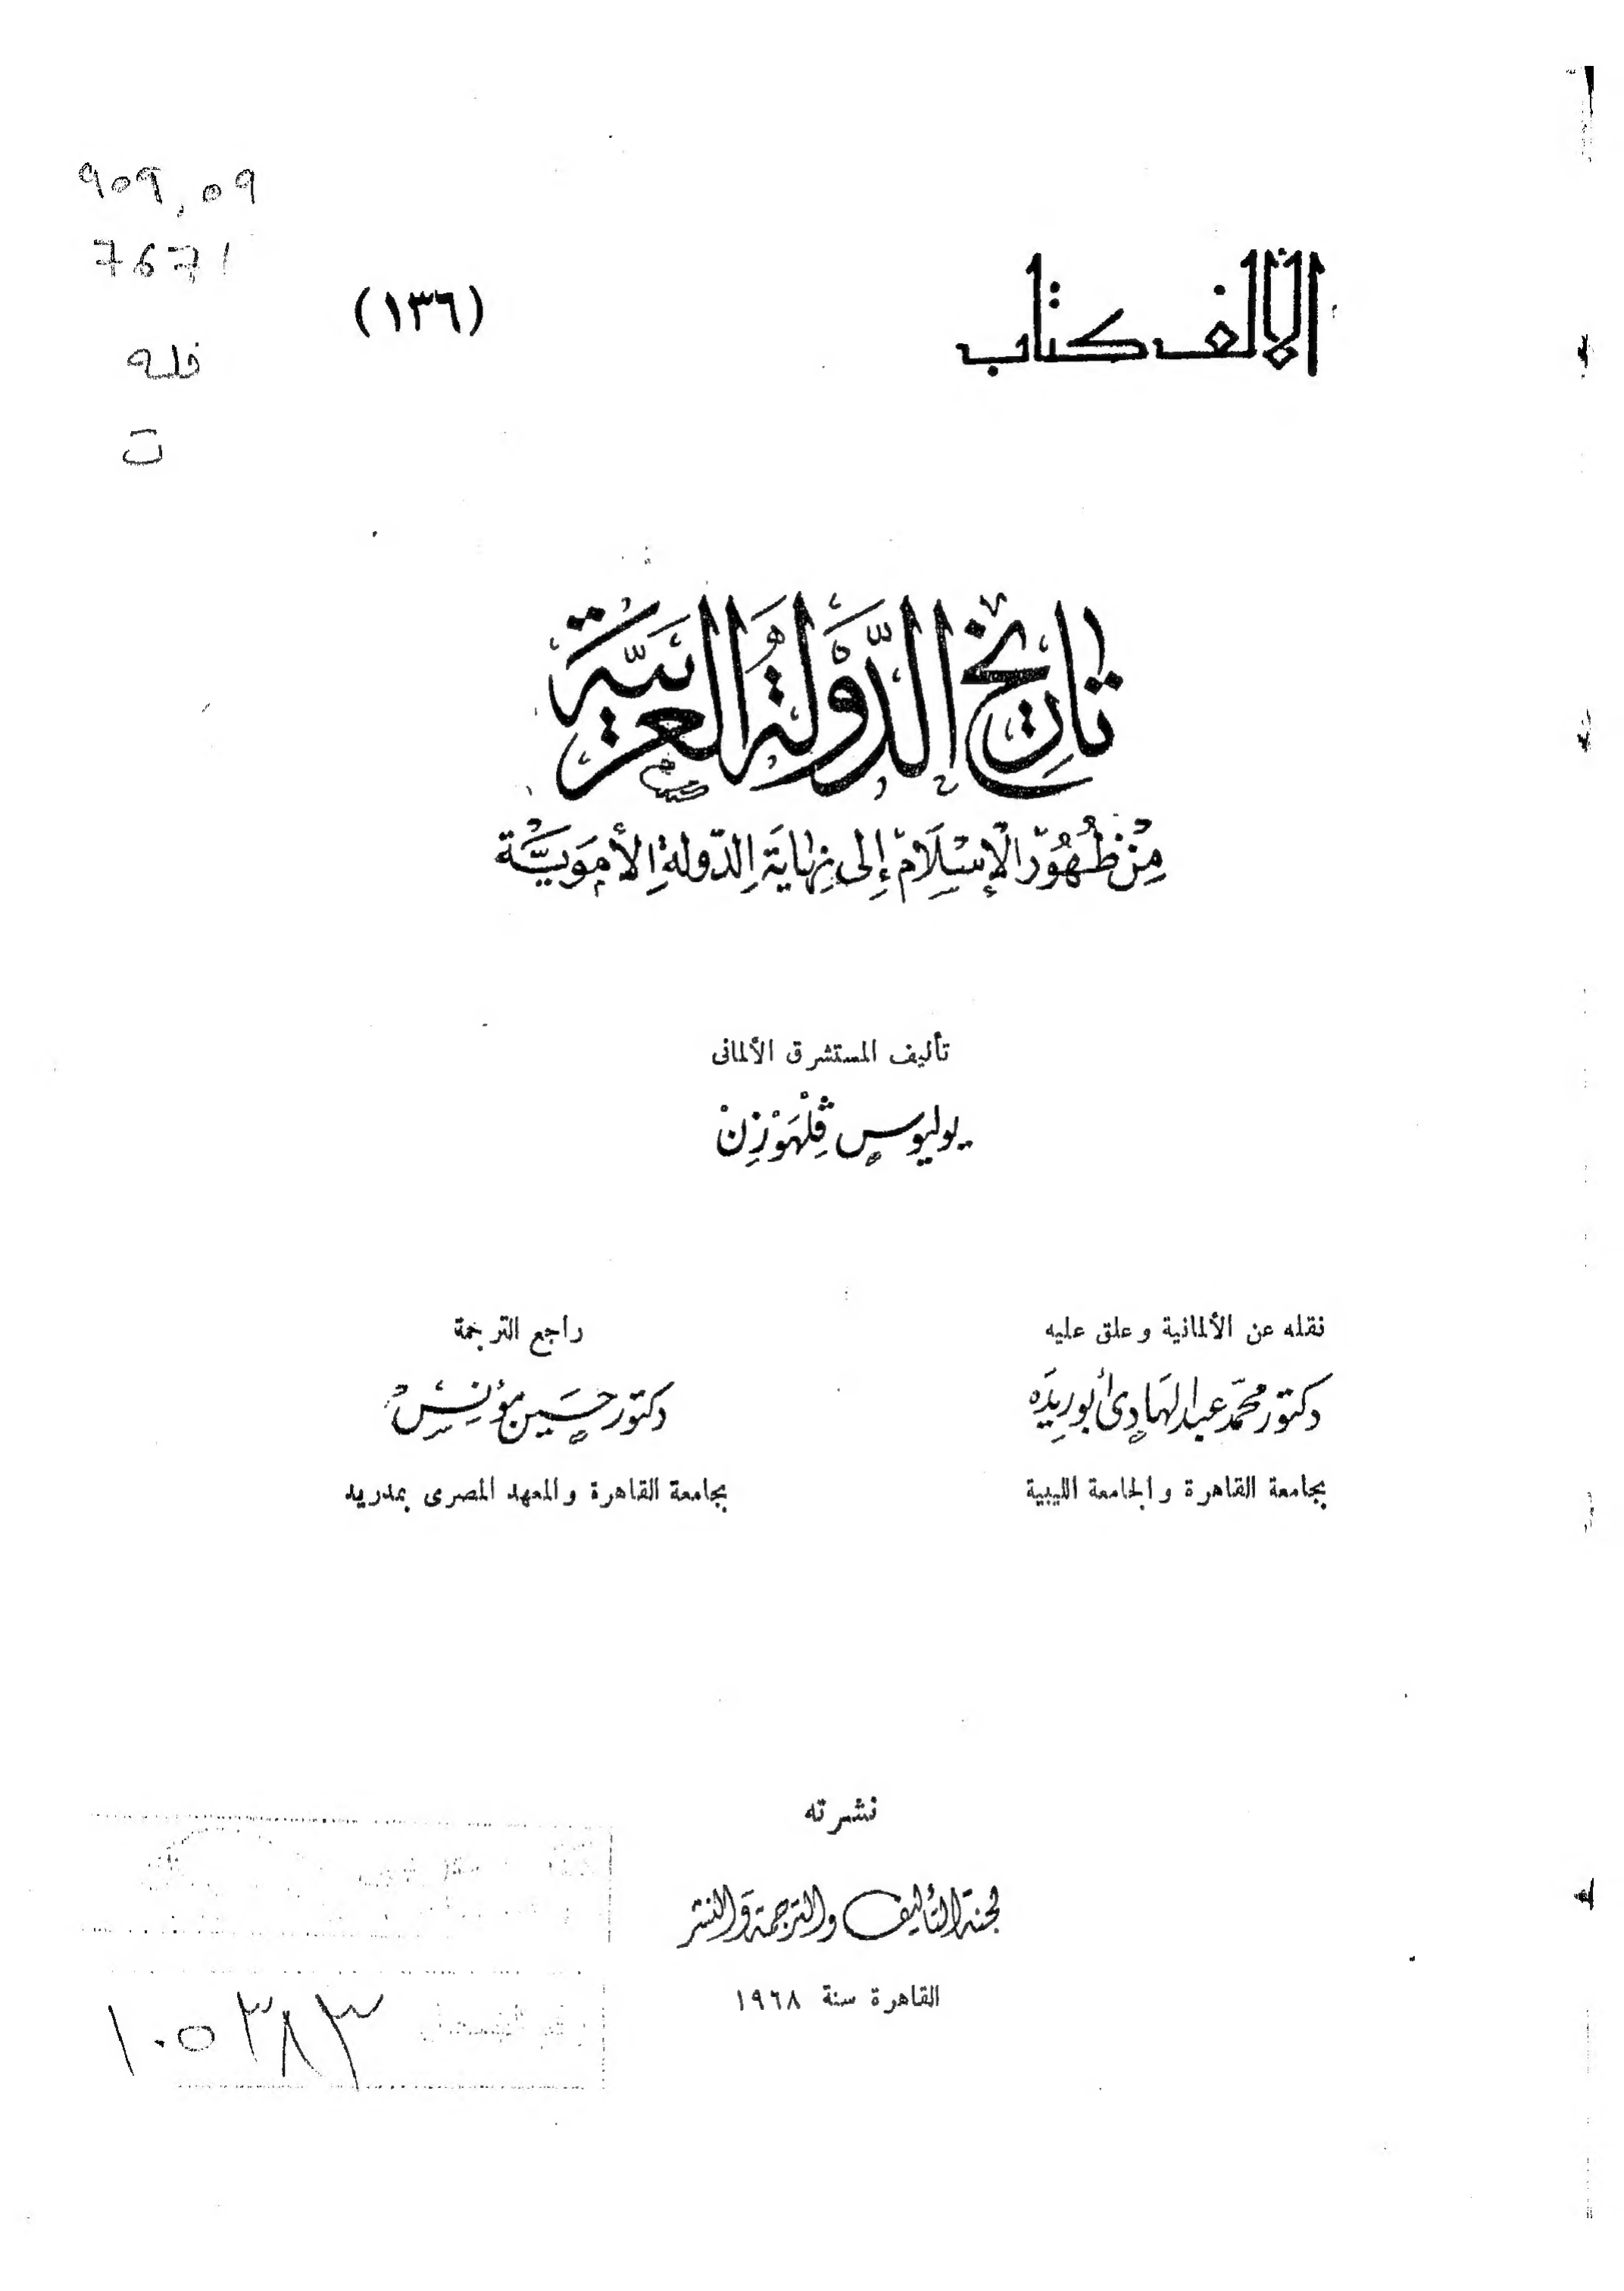 الألف كتاب
(١٣٦)
فله
ت
تاريخ الدَّولة العربيَّة
مِنْ ظُهُور الإِسْلَام إِلى نِهَايَة الدّولة الأُمَويَّة
تأليف المستشرق الألمانى
يوليوس ڤِلْهَوْزِنْ
نقله عن الألمانية وعلق عليه
دكتور محمّد عبد الهَادى أبو ريدَه
بجامعة القاهرة والجامعة الليبية
راجع الترجمة
دكتور حسَين مؤنِس
بجامعة القاهرة والمعهد المصرى بمدريد
نشرته
لجنة التأليف والترجمة والنشر
القاهرة سنة ١٩٦٨
١٠٥٣٨٣